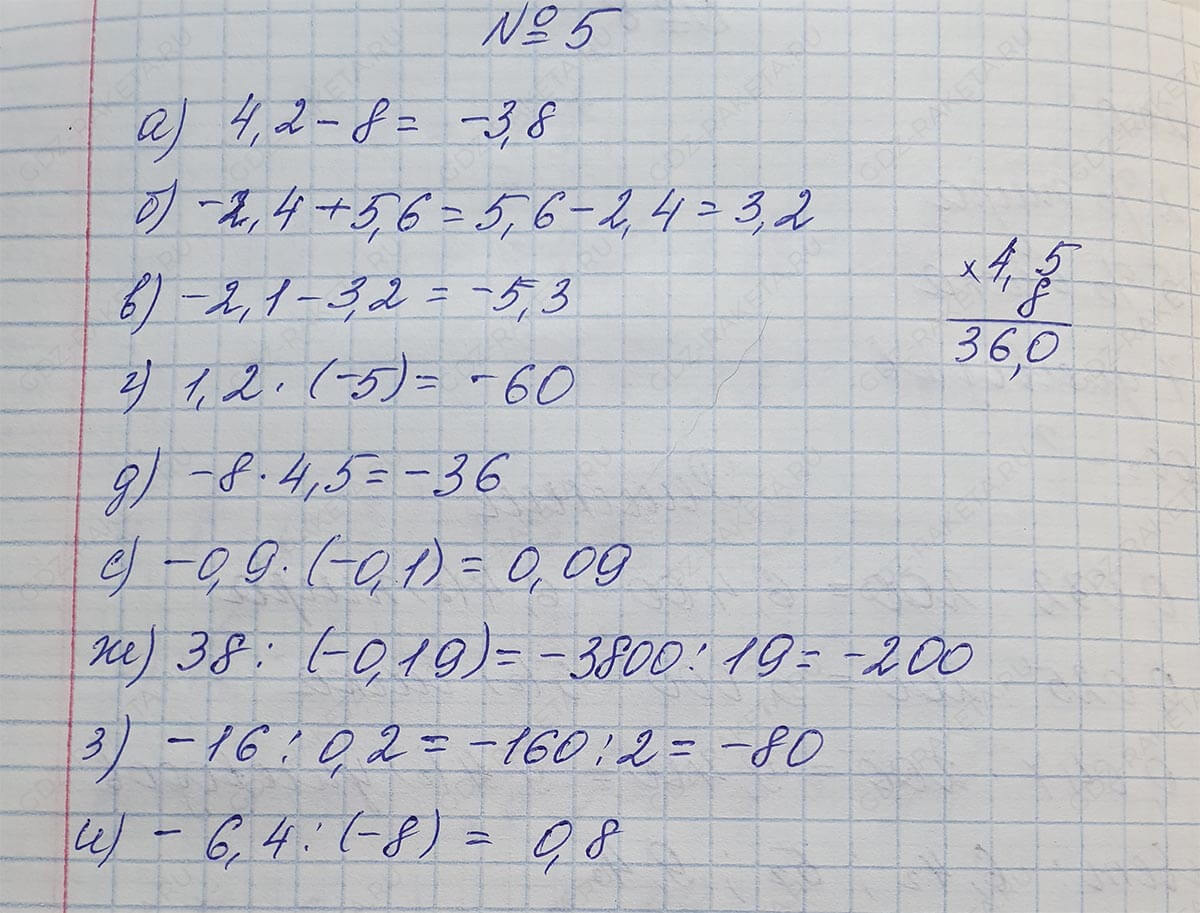 № 5
а) 4,2 - 8 = -3,8
б) -2,4 + 5,6 = 5,6 - 2,4 = 3,2
в) -2,1 - 3,2 = -5,3
г) 1,2 · (-5) = -60
д) -8 · 4,5 = -36
е) -0,9 · (-0,1) = 0,09
ж) 38 : (-0,19) = -3800 : 19 = -200
з) -16 : 0,2 = -160 : 2 = -80
и) - 6,4 : (-8) = 0,8
× 4,5
8
36,0
GDZ-RAKETA.RU